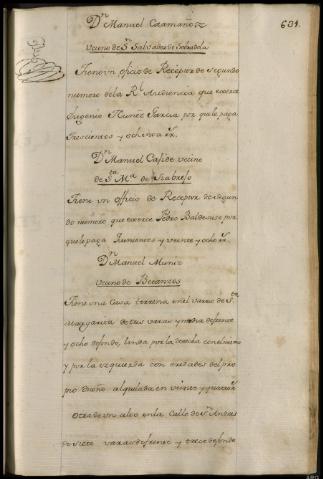 601.
Dn Manuel Caamaño
Vecino de Sn Salvador de
Tiene vn oficio de Rezeptor de segundo
numero de la Rl Audiencia que exerze
Eugenio Nuñez Garcia por que le paga
trescientos y ochenta rs.
Dn Manuel vecino
de Sta Ma de
Tiene vn Officio de Rezeptor de segun
do numero que exerce Pedro por
que le paga y veinte y ocho rs.
Dn Manuel Muniz
Vecino de Betanzos
Tiene una Casa terrena en el varrio de Sta
Margarita de tres varas y media de frente
y ocho de fondo, linda por la derecha con
y por la izquierda con eredades del pro
pio Dueño alquilada en veinte y quatro rs
Otra de un alto en la Calle de Sn Andres
de siete varas de frente y trece de fondo